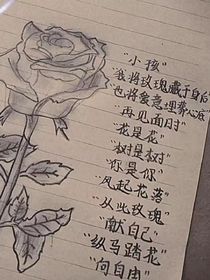 "小孩"
"我将玫瑰藏于身后
也将爱意埋葬心底"
"再见面时"
"花是花"
"树是树"
"你是你"
"风起花落"
"从此玫瑰"
"献自己"
"纵马踏花"
"向自由"